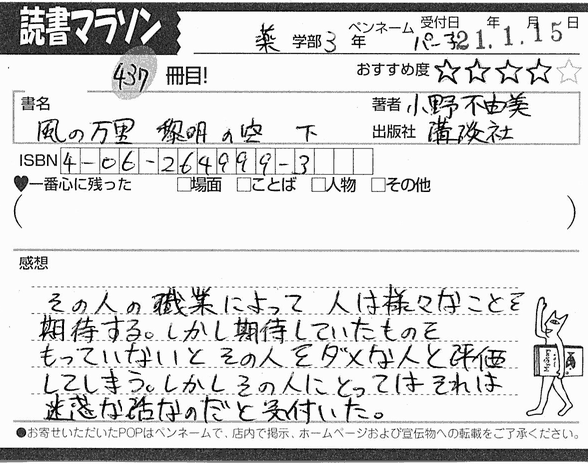 読書マラソン
薬 学部 3 年 ペンネーム パーコ 受付日 21年1月15日
437 冊目!
おすすめ度 ☆☆☆☆☆
書名 著者 小野不由美
風の万里 黎明の空 下 出版社 講談社
ISBN 4-06-264999-3
♥一番心に残った □場面 □ことば □人物 □その他
( )
感想
その人の職業によって 人は様々なことを
期待する。しかし期待していたものを
もっていないと その人をダメな人と評価
してしまう。しかしその人にとってはそれは
迷惑な話なのだと受付いた。
●お寄せいただいたPOPはペンネームで、店内で掲示、ホームページおよび宣伝物への転載をご了承ください。